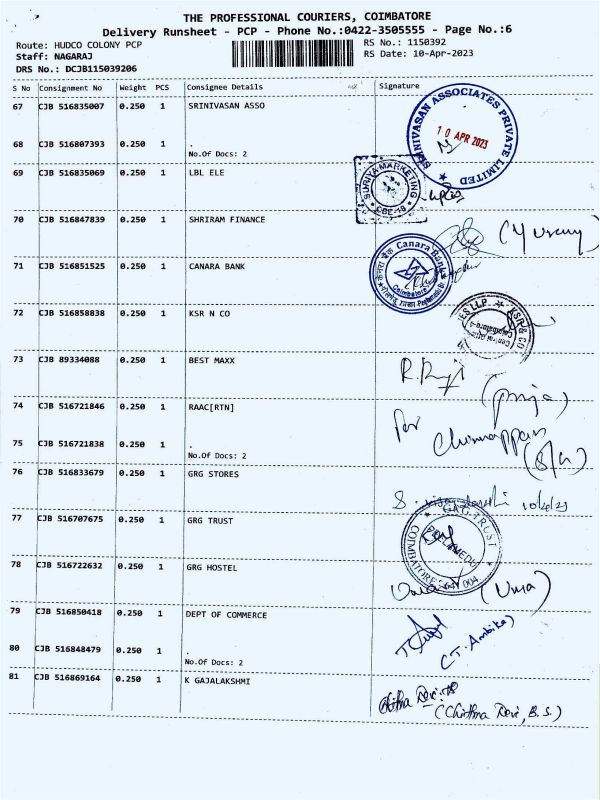 THE PROFESSIONAL COURIERS, COIMBATORE
Delivery Runsheet - PCP - Phone No.:0422-3505555 - Page No.:6
Route: HUDCO COLONY PCP RS No.: 1150392
Staff: NAGARAJ RS Date: 10-Apr-2023
DRS No.: DCJB115039206
S No Consignment No Weight PCS Consignee Details Signature
67 CJB 516835007 0.250 1 SRINIVASAN ASSO
SRINIVASAN ASSOCIATES PRIVATE LIMITED
10 APR 2023
68 CJB 516807393 0.250 1 .
No.Of Docs: 2
69 CJB 516835069 0.250 1 LBL ELE
SURIYA MARKETING
CBE-18
70 CJB 516847839 0.250 1 SHRIRAM FINANCE
71 CJB 516851525 0.250 1 CANARA BANK
Canara Bank
Coimbatore
72 CJB 516858838 0.250 1 KSR N CO
KSR & CO
73 CJB 89334088 0.250 1 BEST MAXX
(priya)
74 CJB 516721846 0.250 1 RAAC[RTN]
for Chinnappan
75 CJB 516721838 0.250 1 .
No.Of Docs: 2
(S/G)
76 CJB 516833679 0.250 1 GRG STORES
77 CJB 516707675 0.250 1 GRG TRUST
GRG TRUST
COIMBATORE 641 004
78 CJB 516722632 0.250 1 GRG HOSTEL
(Uma)
79 CJB 516850418 0.250 1 DEPT OF COMMERCE
(T. Ambika)
80 CJB 516848479 0.250 1 .
No.Of Docs: 2
81 CJB 516869164 0.250 1 K GAJALAKSHMI
Chithra Devi. B
(Chithra Devi, B.S.)